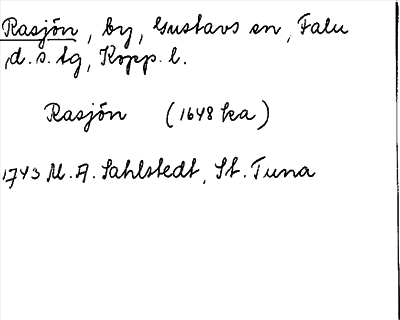 Rasjön, by, Gustavs sn, Falu
d.s. tg, Kopp. l.
Rasjön (1648 ka)
1743 M. A. Sahlstedt, St. Tuna